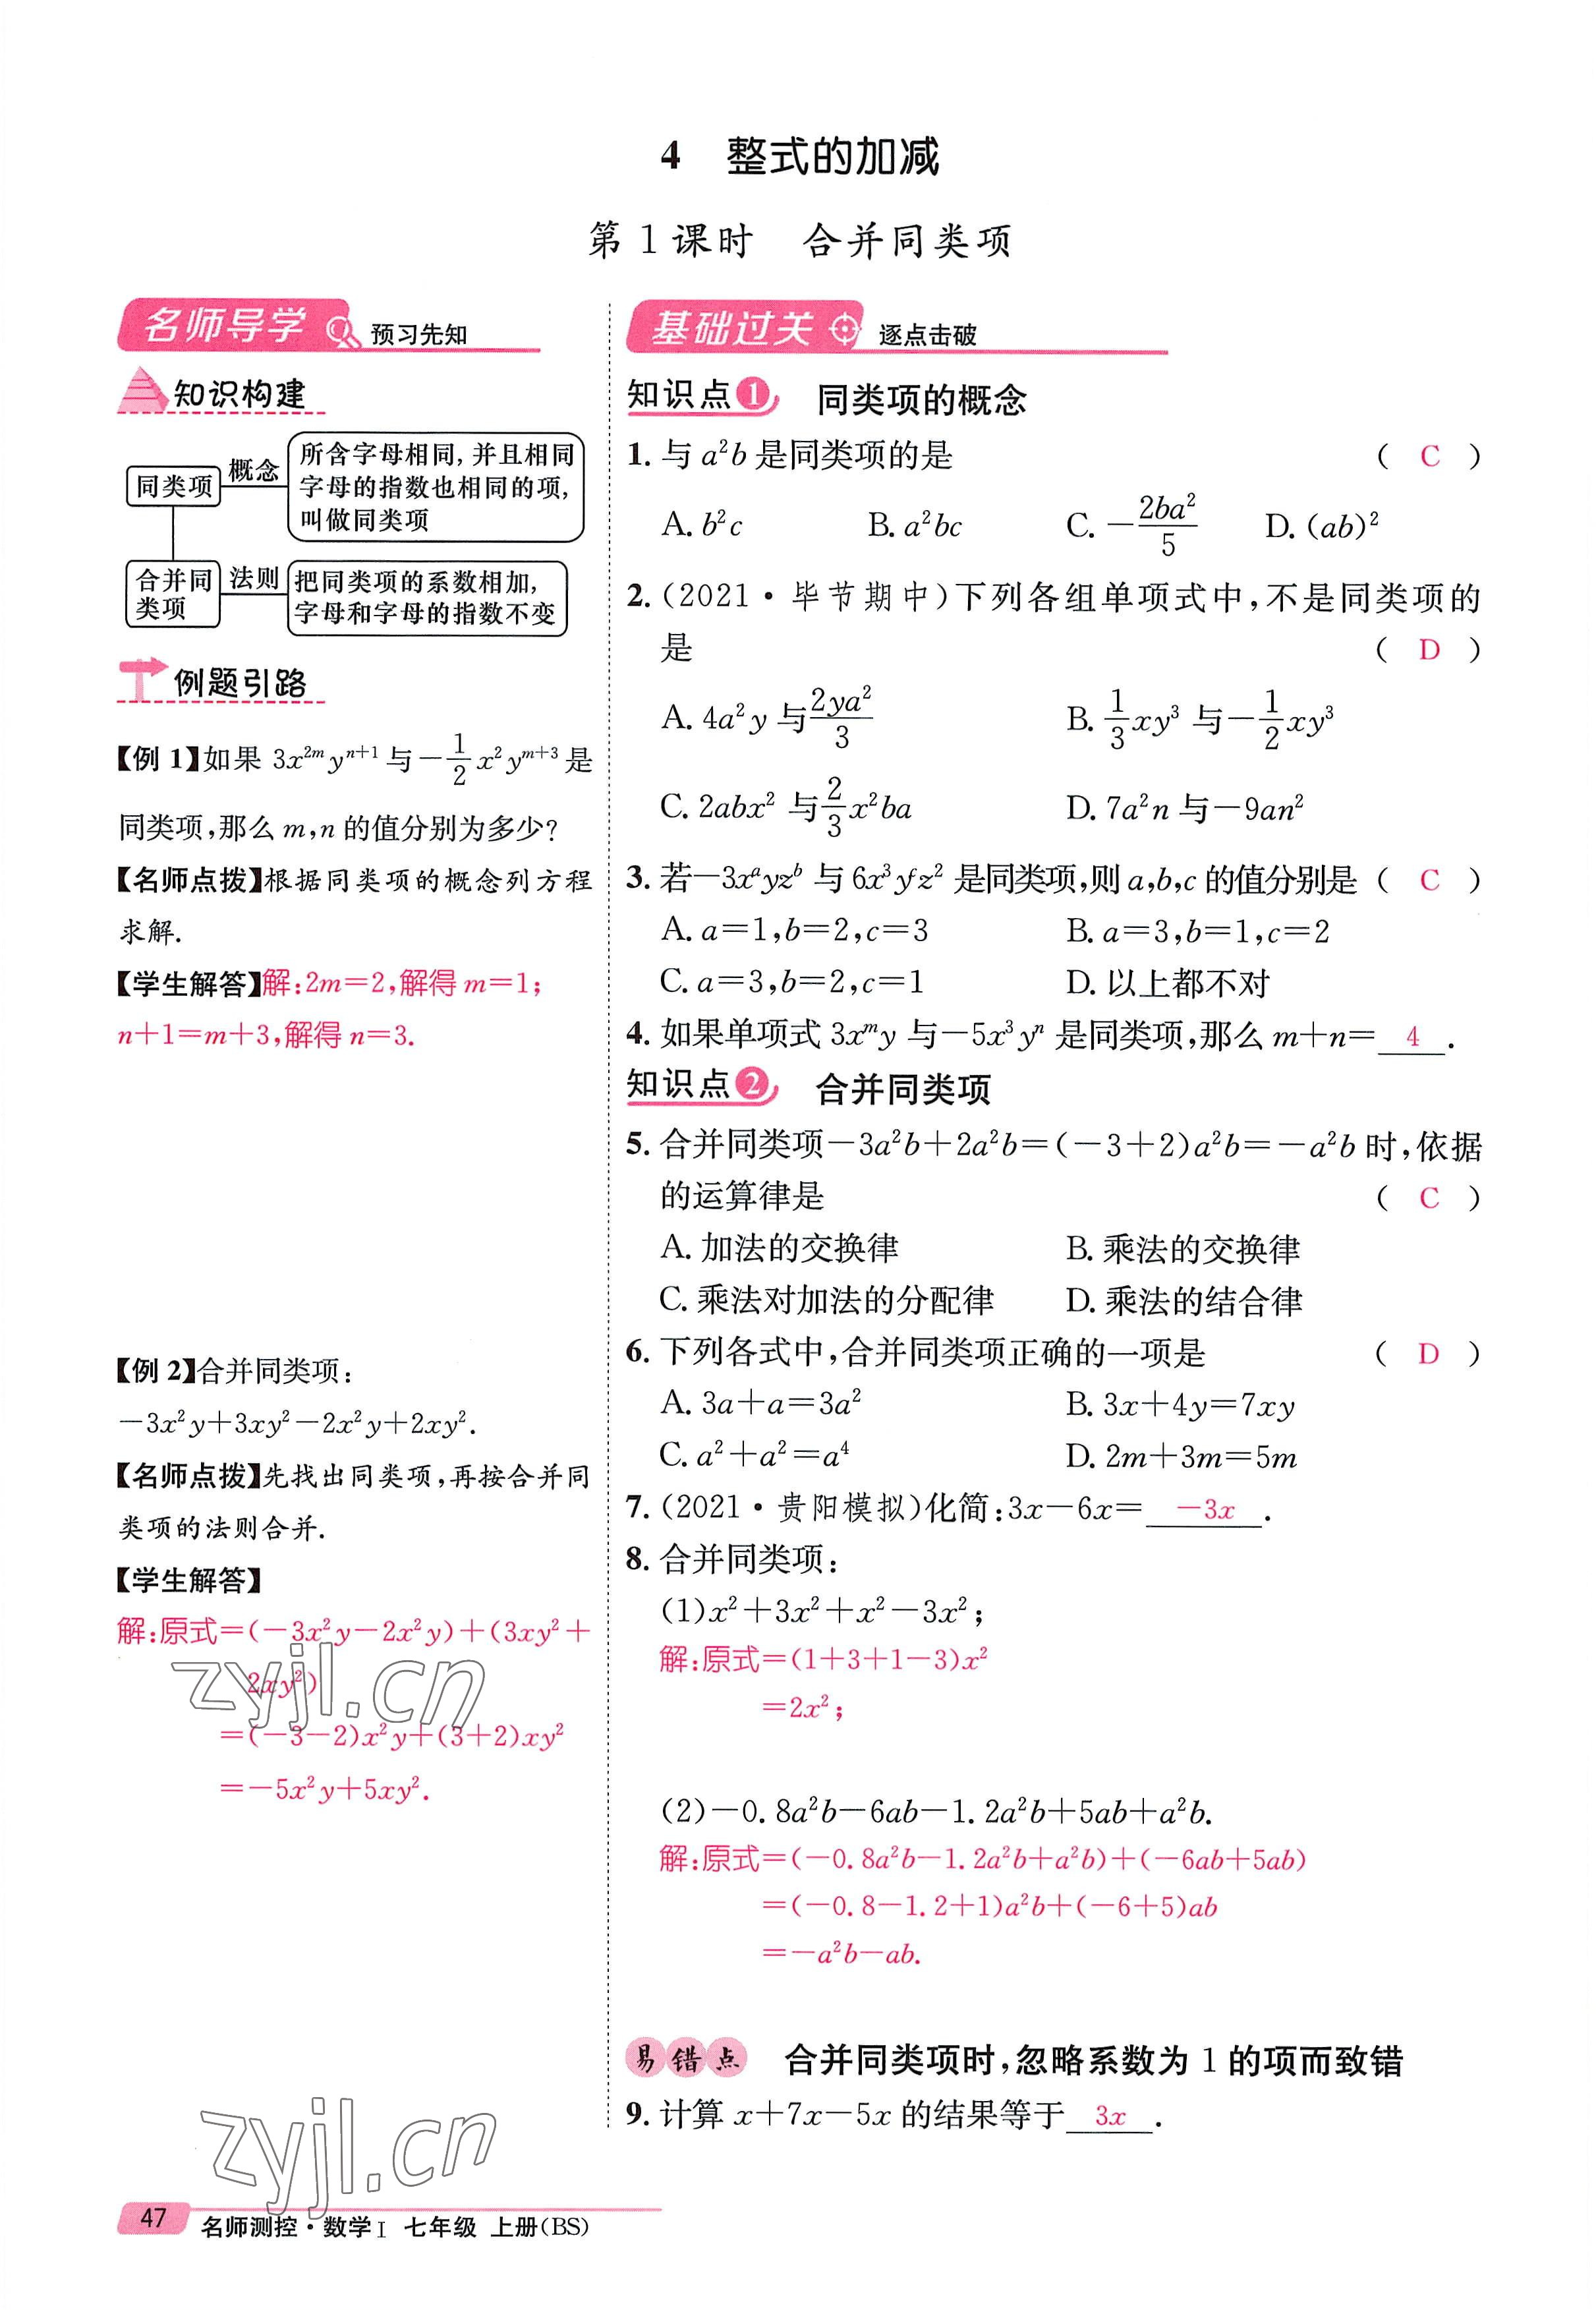 4 整式的加减
第1课时 合并同类项
名师导学 预习先知
知识构建
同类项 概念 所含字母相同,并且相同
字母的指数也相同的项,
叫做同类项
合并同
类项 法则 把同类项的系数相加,
字母和字母的指数不变
例题引路
【例1】如果 3x^{2m}y^{n+1} 与 -\frac{1}{2}x²y^{m+3} 是
同类项,那么 m,n 的值分别为多少?
【名师点拨】根据同类项的概念列方程
求解.
【学生解答】解:2m=2,解得 m=1;
n+1=m+3,解得 n=3.
【例2】合并同类项:
-3x²y+3xy²-2x²y+2xy².
【名师点拨】先找出同类项,再按合并同
类项的法则合并.
【学生解答】
解:原式=(-3x²y-2x²y)+(3xy²+
2xy²)
=(-3-2)x²y+(3+2)xy²
=-5x²y+5xy².
基础过关 逐点击破
知识点1 同类项的概念
1. 与 a²b 是同类项的是 ( C )
A. b²c B. a²bc C. -\frac{2ba²}{5} D. (ab)²
2. (2021·毕节期中)下列各组单项式中,不是同类项的
是 ( D )
A. 4a²y 与 \frac{2ya²}{3} B. \frac{1}{3}xy³ 与 -\frac{1}{2}xy³
C. 2abx² 与 \frac{2}{3}x²ba D. 7a²n 与 -9an²
3. 若-3x^{a}yz^{b} 与 6x³y^{c}z² 是同类项,则 a,b,c 的值分别是 ( C )
A. a=1,b=2,c=3 B. a=3,b=1,c=2
C. a=3,b=2,c=1 D. 以上都不对
4. 如果单项式 3x^{m}y 与 -5x³y^{n} 是同类项,那么 m+n= 4 .
知识点2 合并同类项
5. 合并同类项-3a²b+2a²b=(-3+2)a²b=-a²b 时,依据
的运算律是 ( C )
A. 加法的交换律 B. 乘法的交换律
C. 乘法对加法的分配律 D. 乘法的结合律
6. 下列各式中,合并同类项正确的一项是 ( D )
A. 3a+a=3a² B. 3x+4y=7xy
C. a²+a²=a⁴ D. 2m+3m=5m
7. (2021·贵阳模拟)化简:3x-6x= -3x .
8. 合并同类项:
(1)x²+3x²+x²-3x²;
解:原式=(1+3+1-3)x²
=2x²;
(2)-0.8a²b-6ab-1.2a²b+5ab+a²b.
解:原式=(-0.8a²b-1.2a²b+a²b)+(-6ab+5ab)
=(-0.8-1.2+1)a²b+(-6+5)ab
=-a²b-ab.
易错点 合并同类项时,忽略系数为1的项而致错
9. 计算 x+7x-5x 的结果等于 3x .
zyjl.cn
zyjl.cn
47 名师测控·数学Ⅰ 七年级 上册(BS)